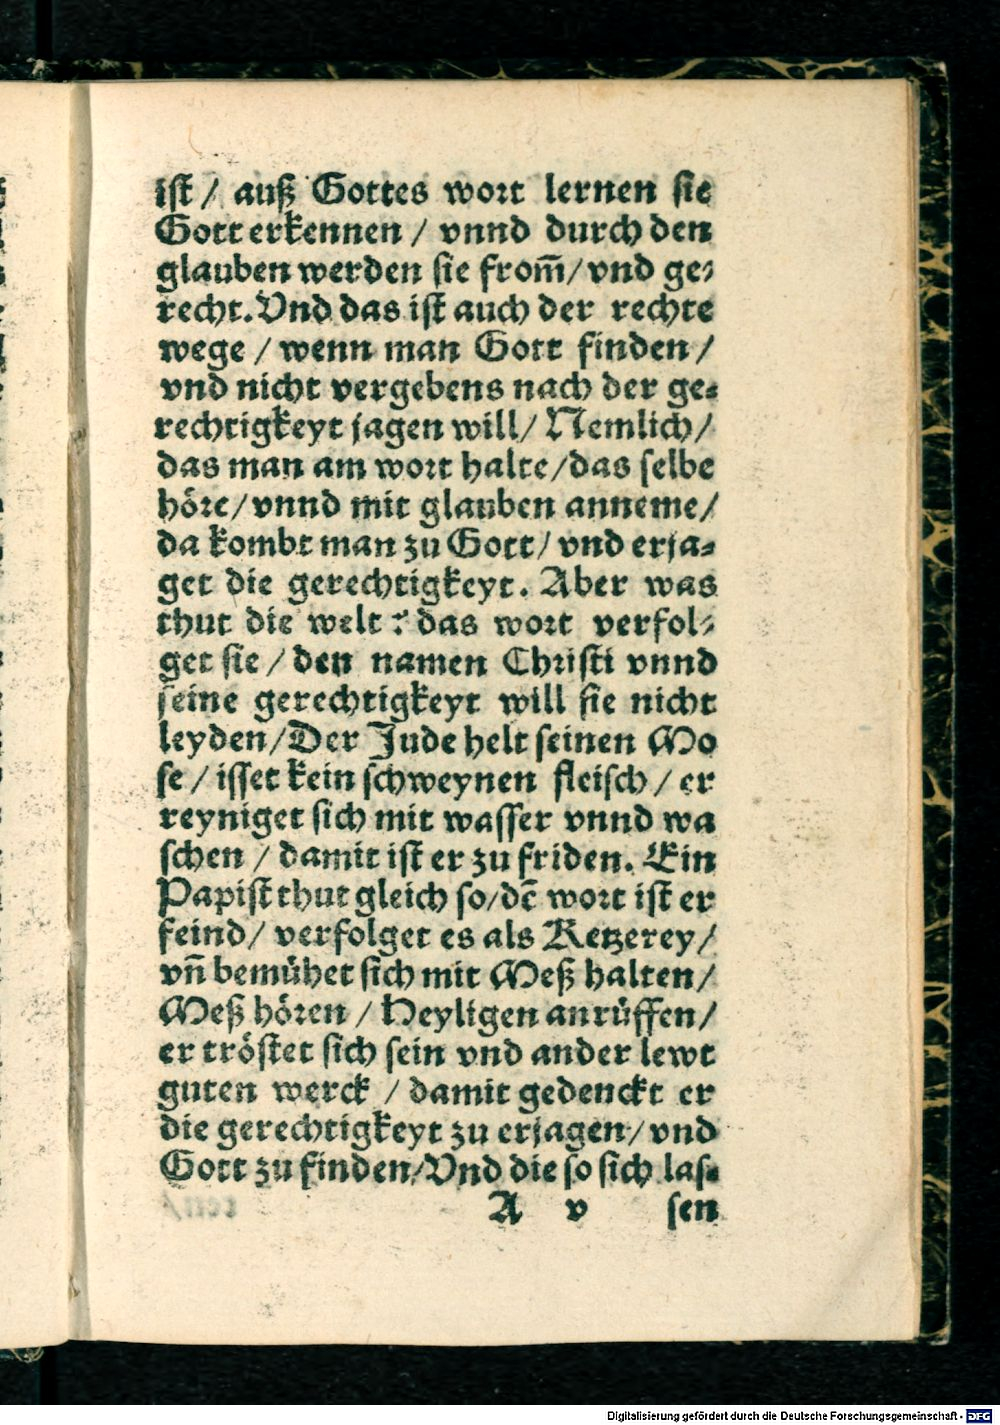 ist / auß Gottes wort lernen sie
Gott erkennen / vnnd durch den
glauben werden sie from̃/ vnd ge-
recht. Vnd das ist auch der rechte
wege / wenn man Gott finden /
vnd nicht vergebens nach der ge-
rechtigkeyt jagen will/ Nemlich/
das man am wort halte/das selbe
höre/ vnnd mit glauben anneme/
da kombt man zu Gott/ vnd erja-
get die gerechtigkeyt. Aber was
thut die welt? das wort verfol-
get sie / den namen Christi vnnd
seine gerechtigkeyt will sie nicht
leyden/Der Jude helt seinen Mo
se / isset kein schweynen fleisch / er
reyniget sich mit wasser vnnd wa
schen / damit ist er zu friden. Ein
Papist thut gleich so/dē wort ist er
feind/ verfolget es als Ketzerey/
vñ bemühet sich mit Meß halten/
Meß hören / Heyligen anrüffen/
er tröstet sich sein vnd ander lewt
guten werck / damit gedenckt er
die gerechtigkeyt zu erjagen/ vnd
Gott zu finden/Vnd die so sich las-
A v sen
Digitalisierung gefördert durch die Deutsche Forschungsgemeinschaft - DFG